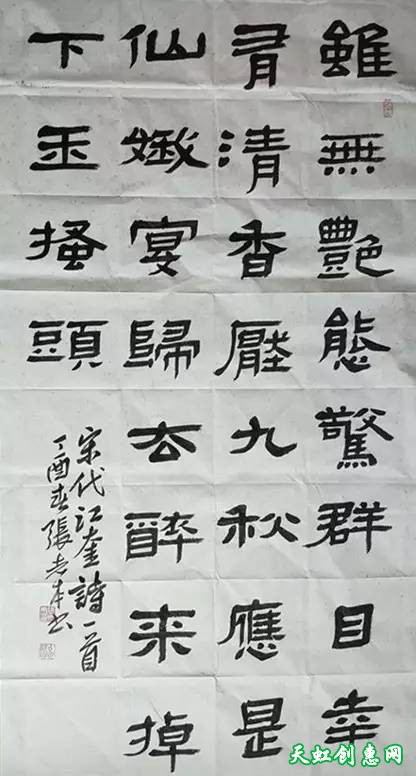 雖無艷態驚群目幸
有清香壓九秋應是
仙娥宴歸去醉来掉
下玉搔頭
宋代江奎詩一首
丁酉春張志本书
天虹创惠网